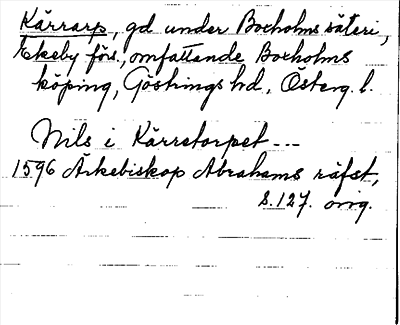 Kärrarp, gd under Boxholms säteri,
Ekebyförs., omfattande Boxholms
köping, Göstrings hd, Österg. l.
Nils i Kärretorpet ---
1596 Ärkebiskop Abrahams räfst,
s. 127. orig.